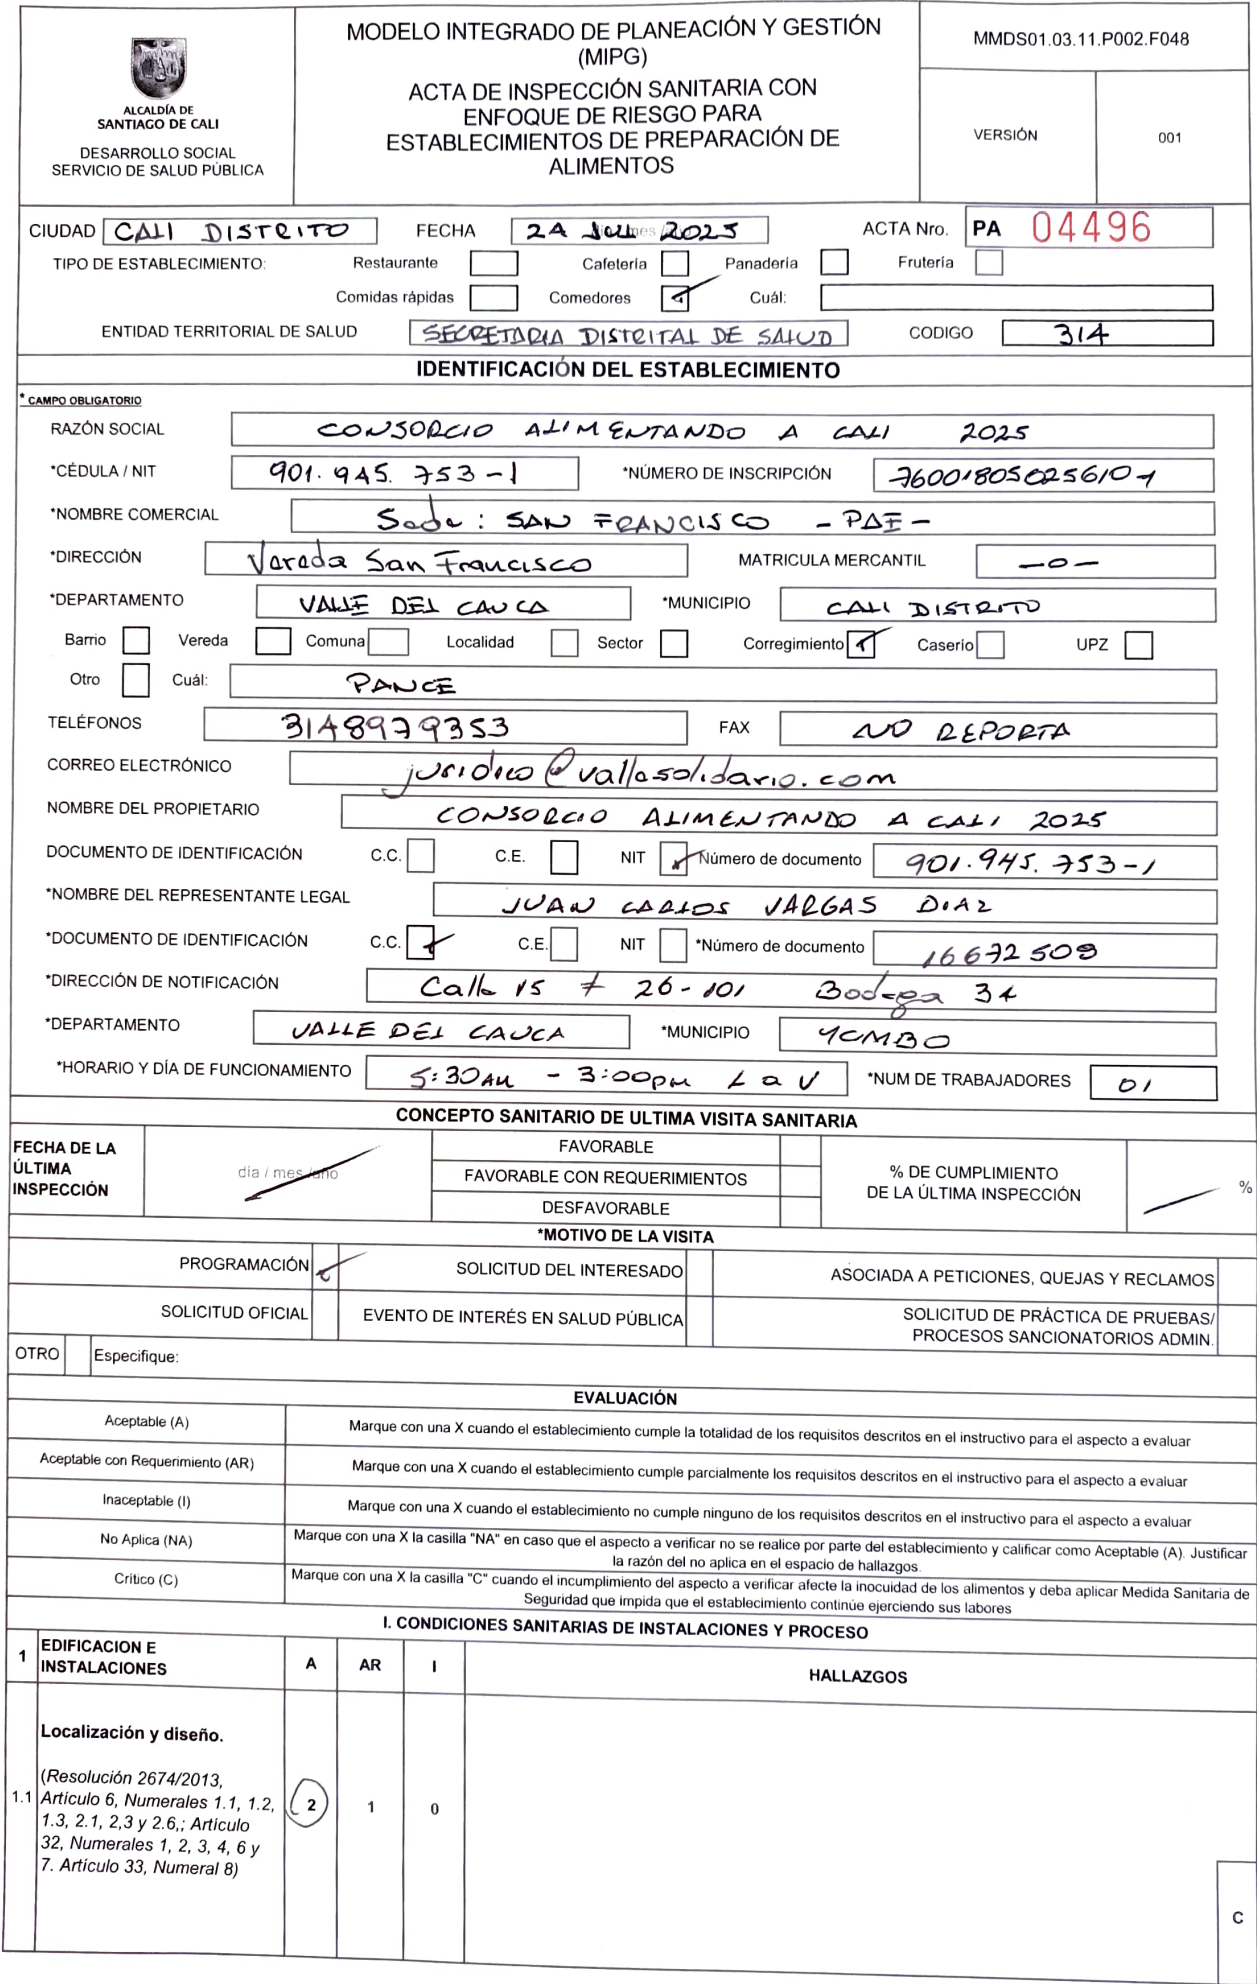 ALCALDÍA DE
SANTIAGO DE CALI
DESARROLLO SOCIAL
SERVICIO DE SALUD PÚBLICA
MODELO INTEGRADO DE PLANEACIÓN Y GESTIÓN
(MIPG)
ACTA DE INSPECCIÓN SANITARIA CON
ENFOQUE DE RIESGO PARA
ESTABLECIMIENTOS DE PREPARACIÓN DE
ALIMENTOS
MMDS01.03.11.P002.F048
VERSIÓN 001
CIUDAD CALI DISTRITO FECHA 24 JUL 2025 ACTA Nro. PA 04496
TIPO DE ESTABLECIMIENTO: Restaurante Cafetería Panadería Frutería
Comidas rápidas Comedores Cuál:
ENTIDAD TERRITORIAL DE SALUD SECRETARIA DISTRITAL DE SALUD CODIGO 314
IDENTIFICACIÓN DEL ESTABLECIMIENTO
* CAMPO OBLIGATORIO
RAZÓN SOCIAL CONSORCIO ALIMENTANDO A CALI 2025
*CÉDULA / NIT 901.945.753-1 *NÚMERO DE INSCRIPCIÓN
*NOMBRE COMERCIAL Sede: SAN FRANCISCO - PAE -
*DIRECCIÓN Vereda San Francisco MATRICULA MERCANTIL -0-
*DEPARTAMENTO VALLE DEL CAUCA *MUNICIPIO CALI DISTRITO
Barrio Vereda Comuna Localidad Sector Corregimiento Caserío UPZ
Otro Cuál: PANCE
TELÉFONOS 3148979353 FAX NO REPORTA
CORREO ELECTRÓNICO juridico@vallesolidario.com
NOMBRE DEL PROPIETARIO CONSORCIO ALIMENTANDO A CALI 2025
DOCUMENTO DE IDENTIFICACIÓN C.C. C.E. NIT Número de documento 901.945.753-1
*NOMBRE DEL REPRESENTANTE LEGAL JUAN CARLOS VARGAS DIAZ
*DOCUMENTO DE IDENTIFICACIÓN C.C. C.E. NIT *Número de documento 16672509
*DIRECCIÓN DE NOTIFICACIÓN Calle 15 # 26-101 Bodega 34
*DEPARTAMENTO VALLE DEL CAUCA *MUNICIPIO YUMBO
*HORARIO Y DÍA DE FUNCIONAMIENTO 5:30AM - 3:00pm L a V *NUM DE TRABAJADORES 01
CONCEPTO SANITARIO DE ULTIMA VISITA SANITARIA
FECHA DE LA
ÚLTIMA
INSPECCIÓN
día / mes /año
FAVORABLE
FAVORABLE CON REQUERIMIENTOS
DESFAVORABLE
% DE CUMPLIMIENTO
DE LA ÚLTIMA INSPECCIÓN
%
*MOTIVO DE LA VISITA
PROGRAMACIÓN SOLICITUD DEL INTERESADO ASOCIADA A PETICIONES, QUEJAS Y RECLAMOS
SOLICITUD OFICIAL EVENTO DE INTERÉS EN SALUD PÚBLICA SOLICITUD DE PRÁCTICA DE PRUEBAS/
PROCESOS SANCIONATORIOS ADMIN.
OTRO Especifique:
EVALUACIÓN
Aceptable (A) Marque con una X cuando el establecimiento cumple la totalidad de los requisitos descritos en el instructivo para el aspecto a evaluar
Aceptable con Requerimiento (AR) Marque con una X cuando el establecimiento cumple parcialmente los requisitos descritos en el instructivo para el aspecto a evaluar
Inaceptable (I) Marque con una X cuando el establecimiento no cumple ninguno de los requisitos descritos en el instructivo para el aspecto a evaluar
No Aplica (NA) Marque con una X la casilla "NA" en caso que el aspecto a verificar no se realice por parte del establecimiento y calificar como Aceptable (A). Justificar
la razón del no aplica en el espacio de hallazgos.
Crítico (C) Marque con una X la casilla "C" cuando el incumplimiento del aspecto a verificar afecte la inocuidad de los alimentos y deba aplicar Medida Sanitaria de
Seguridad que impida que el establecimiento continúe ejerciendo sus labores
I. CONDICIONES SANITARIAS DE INSTALACIONES Y PROCESO
1 EDIFICACION E
INSTALACIONES A AR I HALLAZGOS
Localización y diseño.
(Resolución 2674/2013,
1.1 Artículo 6, Numerales 1.1, 1.2, 2 1 0
1.3, 2.1, 2,3 y 2.6,; Artículo
32, Numerales 1, 2, 3, 4, 6 y
7. Artículo 33, Numeral 8)
C